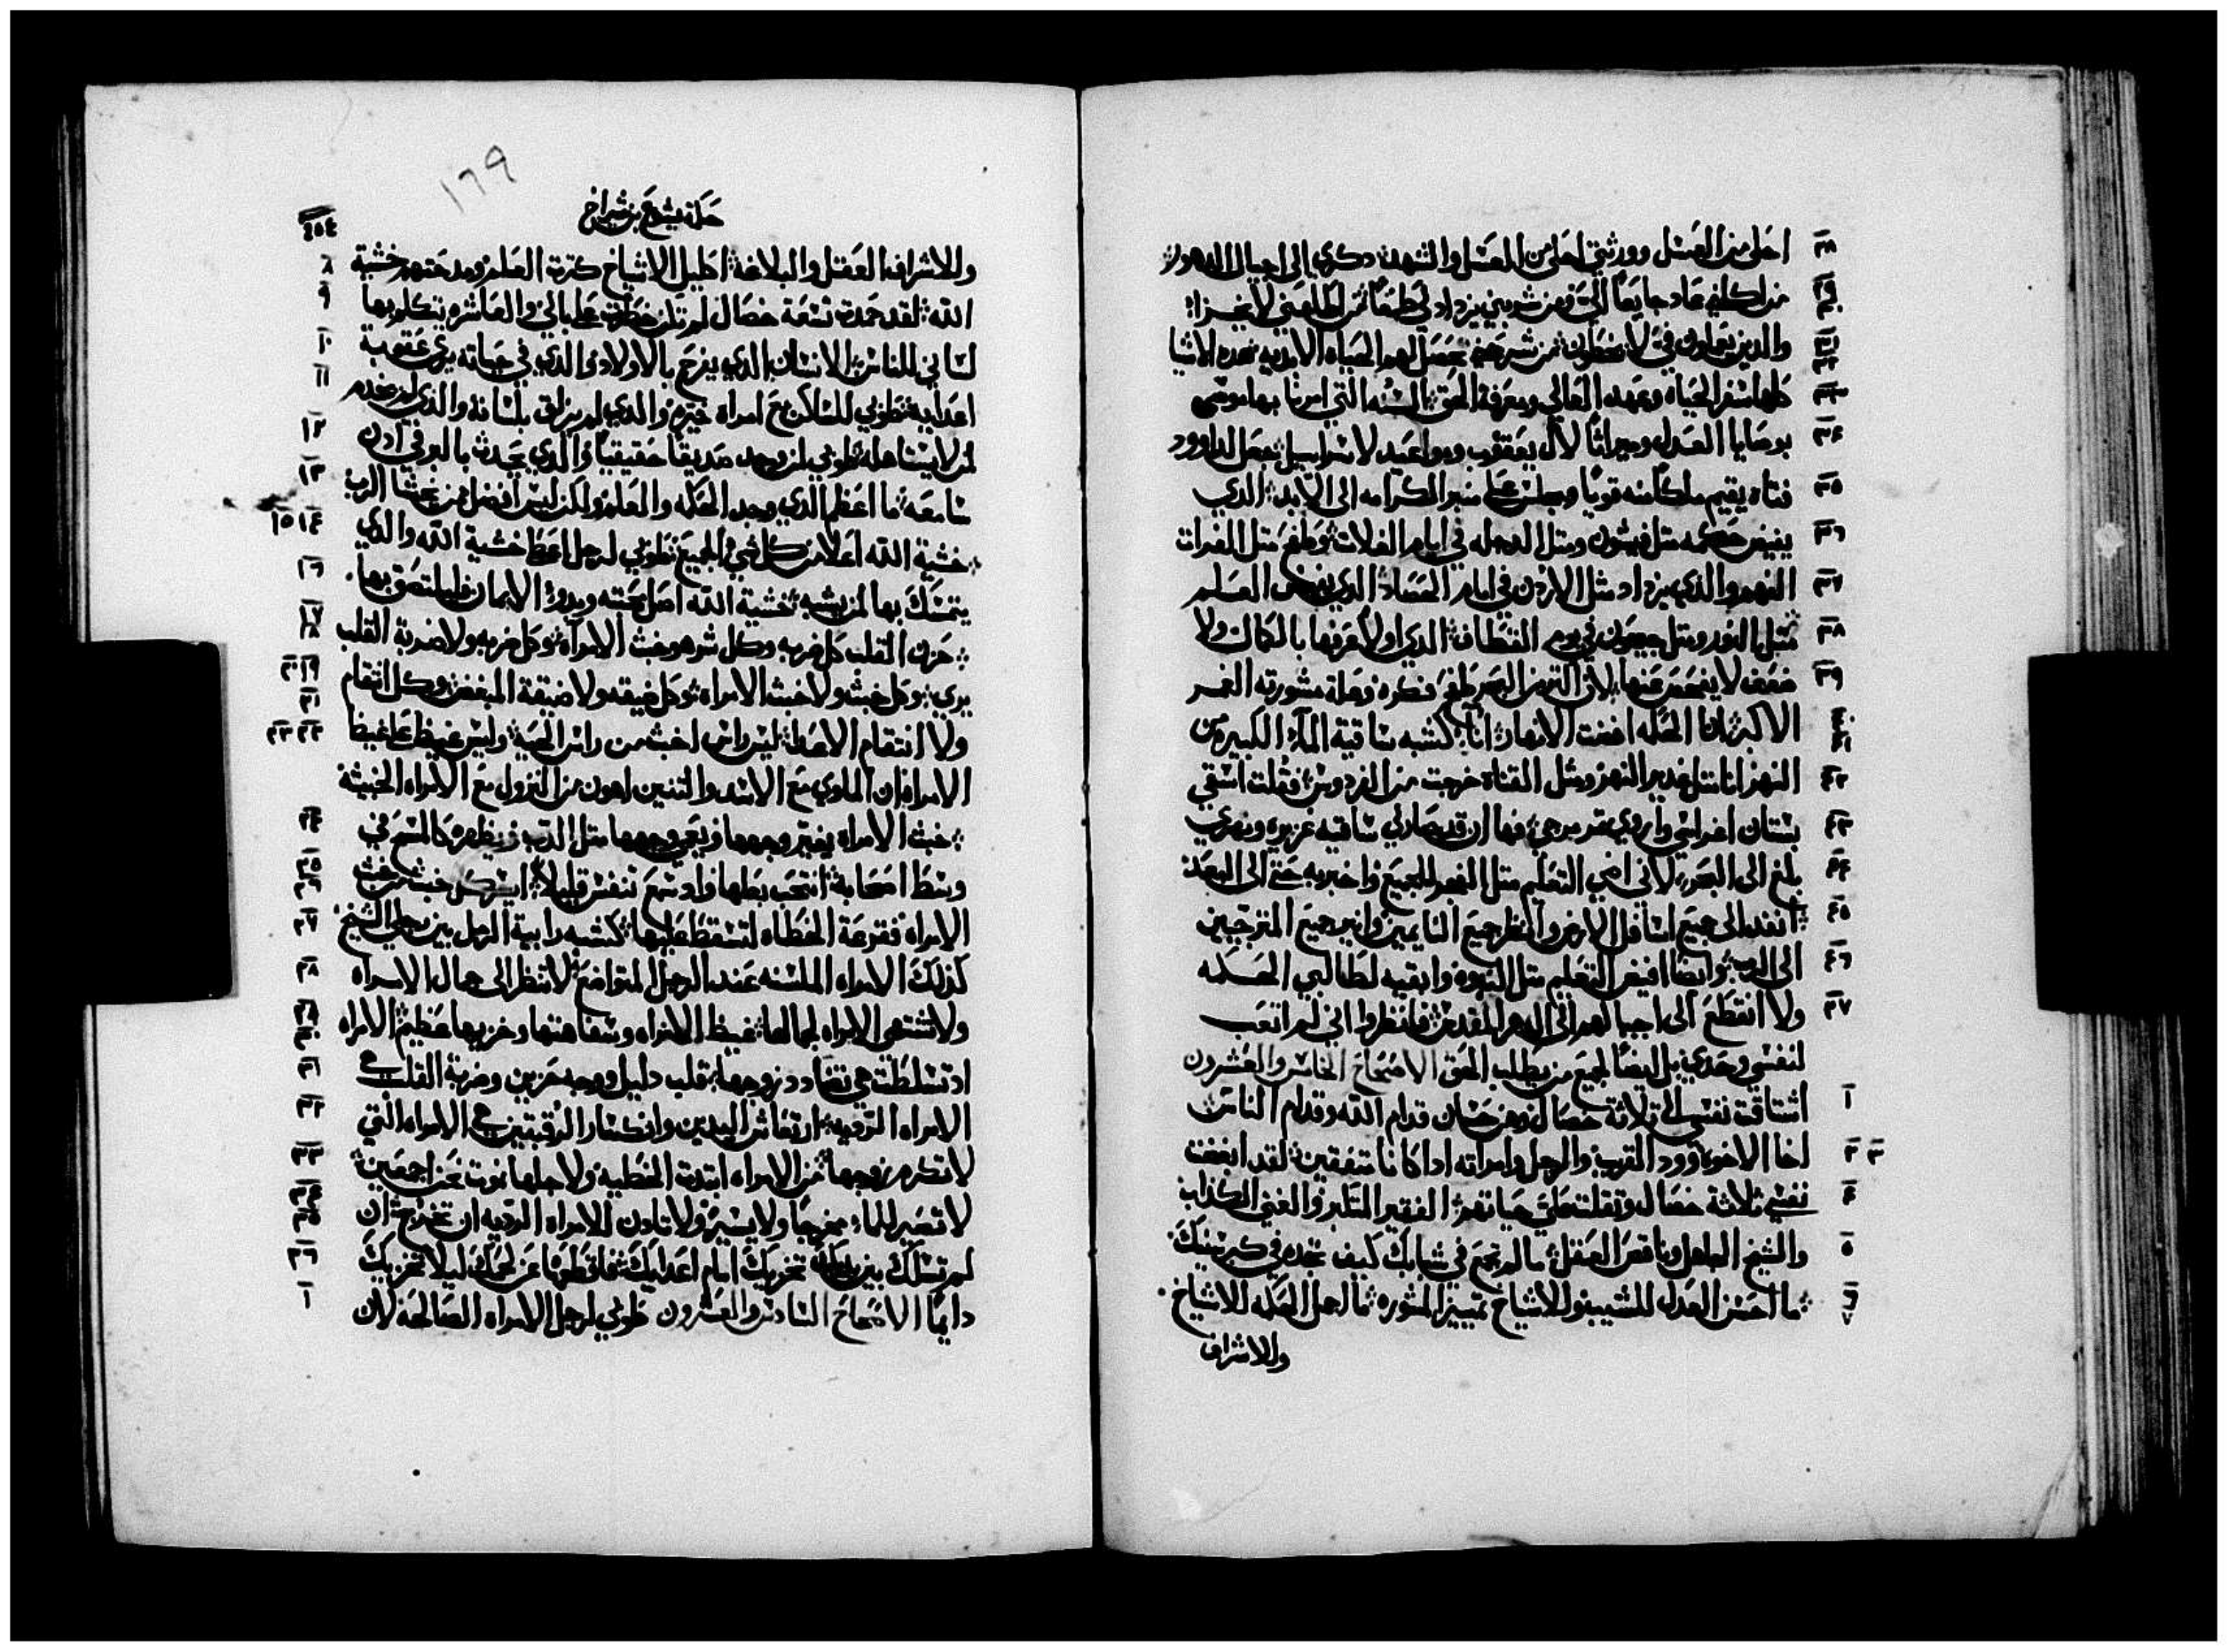 احلى من العسل وورثتي احلى من العسل والشهد: ذكري الى اجيال الدهور:
من اكلني عاد جايعًا اليّ ومن شربني يزداد لي طمًا من اطاعني لا يخزا:
والدين يعملون فيّ لا يخطون: من شرحني تحصل لهم الحياه الابديه: هده الاشيا
كلها سفر الحياه وعهد العالي ومعرفة الحق: السنه التي امرنا بها موسى
بوصايا العدل وميراثًا لال يعقوب ومواعيد لاسراييل: جعل لداوود
فتاه يقيم ملكًا منه قويًا ويجلس على منبر الكرامه الى الابد: الدي
يفيض حكمه مثل فيشون ومثل الدجله في ايام الغلات: وطفح مثل الفرات
الفهم والذي يزداد مثل الاردن في ايام الحصاد: الدي يفيض العلم
مثل النور ومثل جيحون في يوم القطاف: الدي اولًا عرفها بالكمال ولا
ضعف لا يفحص عنها: لان اكتر من البحر طفح فكره وعملة مشورته الغمر
الاكبر: انا الحكمه افضت الانهار: انا كشبه ساقية الما الكبيره من
النهر: انا مثل غدير النهر ومثل القناة خرجت من الفردوس: فقلت اسقي
بستان اغراسي واروي تمر مرجي: فها ان قد صار لي ساقيه غزيره ونهري
بلغ الى البحر: لاني اضي التعليم مثل الفجر للجميع واخبر به حتى الى البعد:
انفد الى جميع اسافل الارض وانظر جميع النايمين وانير جميع المترجيين
الى الرب: وايضًا افيض التعليم مثل النبوه وابقيه لطالبي الحكمه
ولا انقطع الى اجيالهم الى الدهر المقدس: فانظروا اني لم اتعب
لنفسي وحدي بل ايضًا لجميع من يطلب الحق الاصحاح الخامس والعشرون
اشتاقت نفسي الى تلاتة خصال وهن حسان قدام الله وقدام الناس:
اخا الاخوه وود القريب والرجل وامراته ادا كانا متفقين: لقد ابغضت
نفسي ثلاثة خصال وتقلت عليّ حياتهم: الفقير المتكبر والغني الكذاب
والشيخ الجاهل وناقص العقل: ما لم تجمع في شبابك كيف تجده في كبر سنك:
ما احسن العدل للمشيب وللاشياخ تمييز المشوره: ما اجمل الحكمه للاشياخ
وللاشراف
حكمة يشوع بن شيراخ
١٦٩
٤٥٤
وللاشراف العقل والبلاغة: اكليل الاشياخ كترة العلم ومدحتهم خشية
الله: لقد حمدت تسعة خصال لم تكن خطرت على بالي والعاشره يتكلم بها
لساني للناس: الانسان الدي يفرح بالاولاد والدي في حياته يرى عقوبة
اعدايه: طوبى للساكن مع امراه خبيره والدي لم يزلق بلسانه والدي لم يخدم
لمن لا يستاهله: طوبى لمن وجد صديقًا حقيقيًا والدي يحدث بالبر في ادن
سامعه: ما اعظم الدي وجد الحكمه والعلم ولكن ليس افضل ممن يخشا الرب:
خشية الله اعلا من كل شي في الجميع: طوبى لرجل اعطا خشية الله والدي
يتمسك بها لمن يشبه: خشية الله اصل محبته وبدو الايمان فليلتصق بها:
حزن القلب كل ضربه وكل شر هو خبث الامراه: وكل ضربه ولا ضربة القلب
يرى: وكل خبث ولا خبث الامراه: وكل ضيقه ولا ضيقة المبغض: وكل انتقام
ولا انتقام الاعدا: ليس راس اخبث من راس الحية: وليس غيظ على غيظ
الامراه: ان الماوي مع الاسد والتنين اهون من النزول مع الامراه الخبيثة
خبث الامراه يغير وجهها ويعمي وجهها مثل الدب ويظهره كالمسح في
وسط اصحابه: انتحب بعلها واد سمع تنفس قليلًا: ايسر كل خبث من خبث
الامراه فقرعة الخطاه لتسقط عليها: كشبه رابية الرمل بين رجلي الشيخ
كذلك الامراه الملسنه عند الرجل المتواضع: لا تنظر الى جمال الامراه
ولا تشتهي الامراه لجمالها: غيظ الامراه وسفاهتها وخزيها عظيم: الامراه
اد تسلطت هي تضادد زوجها: قلب دليل ووجه حزين وضربة القلب هي
الامراه الرديه: ارتعاش اليدين وانكسار الركبتين هي الامراه التي
لا تكرم زوجها: من الامراه ابتدت الخطيه ولاجلها نموت نحن اجمعين:
لا تصير للماء مخرجًا ولا يسير ولا تادن للامراه الرديه ان تخرج: ان
لم تسلك بين يديك تخزيك امام اعدايك: فاقطعها عن لحمك ليلا تخزيك
دايمًا الاصحاح السادس والعشرون طوبى لرجل الامراه الصالحه لان